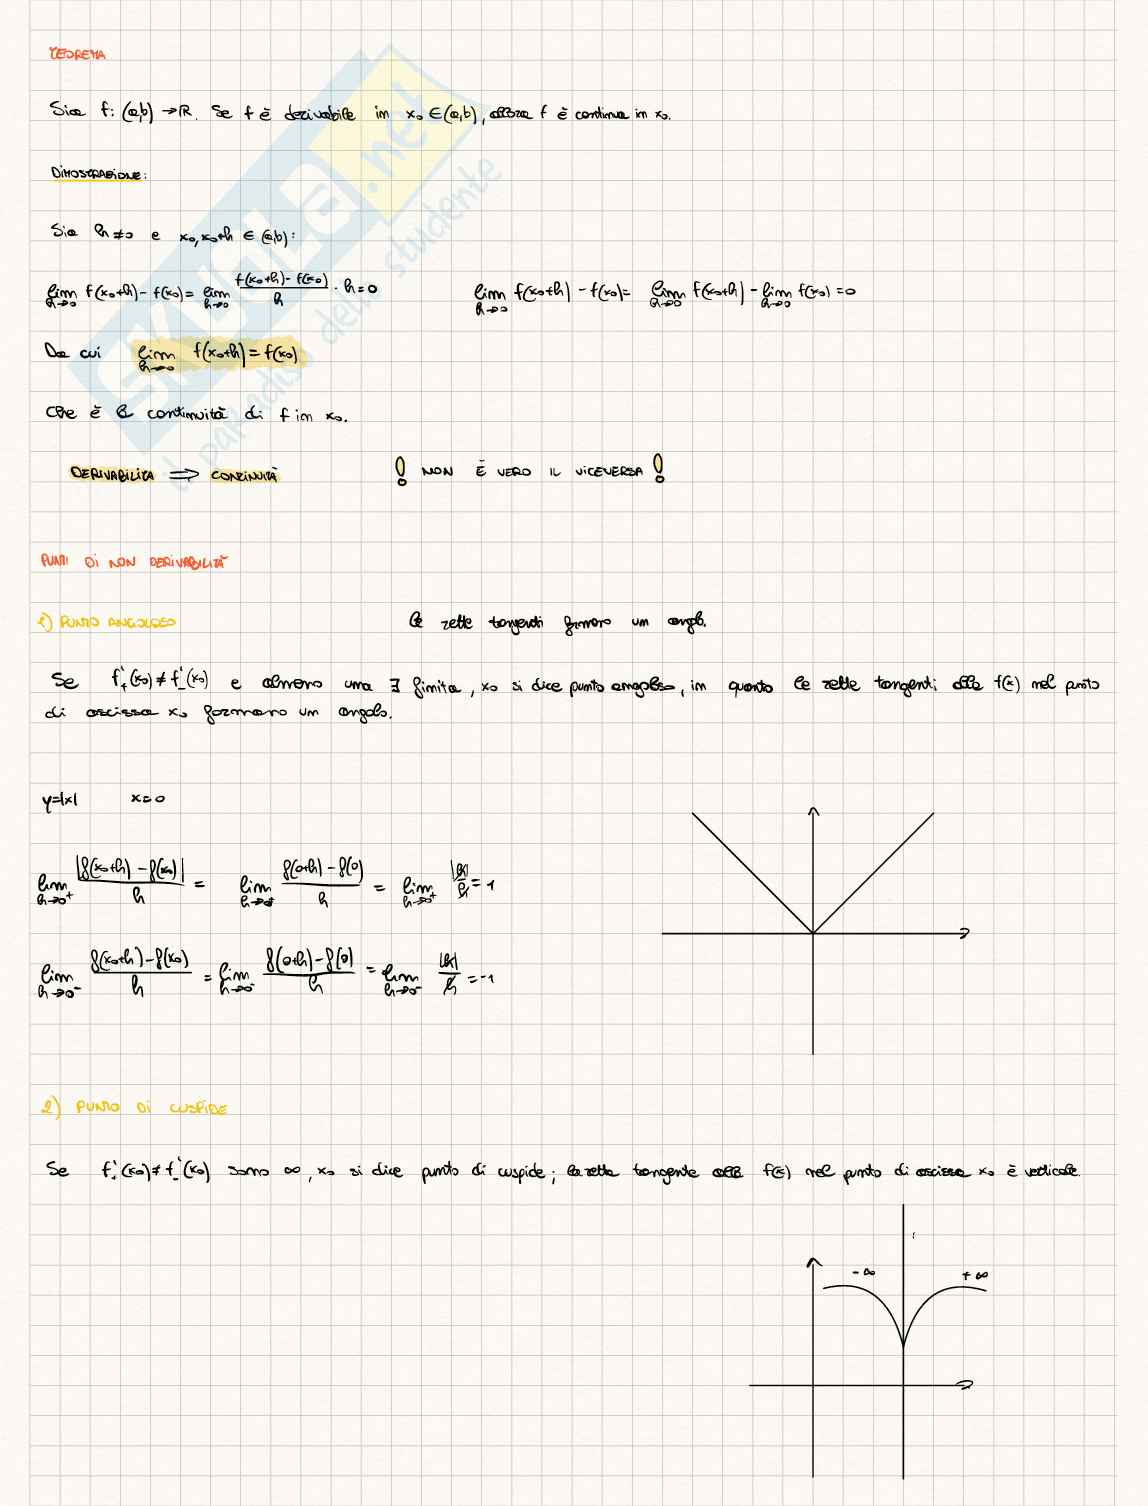 TEOREMA
Sia f: (a,b) → ℝ. Se f è derivabile in x₀ ∈ (a,b), allora f è continua in x₀.
DIMOSTRAZIONE:
Sia h ≠ 0 e x₀, x₀+h ∈ (a,b):
lim h→0 f(x₀+h) - f(x₀) = lim h→0 (f(x₀+h) - f(x₀))/h · h = 0
lim h→0 f(x₀+h) - f(x₀) = lim h→0 f(x₀+h) - lim h→0 f(x₀) = 0
Da cui lim h→0 f(x₀+h) = f(x₀)
Che è la continuità di f in x₀.
DERIVABILITÀ ⟹ CONTINUITÀ ! NON È VERO IL VICEVERSA !
PUNTI DI NON DERIVABILITÀ
1) PUNTO ANGOLOSO le rette tangenti formano un angolo.
Se f'₊(x₀) ≠ f'₋(x₀) e almeno una ∃ finita, x₀ si dice punto angoloso, in quanto le rette tangenti alla f(x) nel punto
di ascissa x₀ formano un angolo.
y=|x| x=0
lim h→0⁺ |f(x₀+h) - f(x₀)|/h = lim h→0⁺ (f(0+h) - f(0))/h = lim h→0⁺ |h|/h = 1
lim h→0⁻ (f(x₀+h) - f(x₀))/h = lim h→0⁻ (f(0+h) - f(0))/h = lim h→0⁻ |h|/h = -1
2) PUNTO DI CUSPIDE
Se f'₊(x₀) ≠ f'₋(x₀) sono ∞, x₀ si dice punto di cuspide; la retta tangente alla f(x) nel punto di ascissa x₀ è verticale.
-∞ +∞
SKUOLA.net
il paradiso dello studente